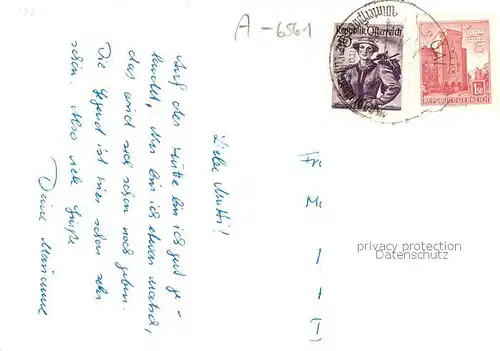 A-6561
Liebe Mutti!
Auf der Hütte bin ich gut ge-
landet, nur bin ich etwas matsch,
das wird sich schon noch geben.
Die Gegend ist hier schon sehr
schön. Also viele Grüße
Deine Marianne
Republik Österreich
1.50
REPUBLIK ÖSTERREICH
Fr
M
I
privacy protection
Datenschutz